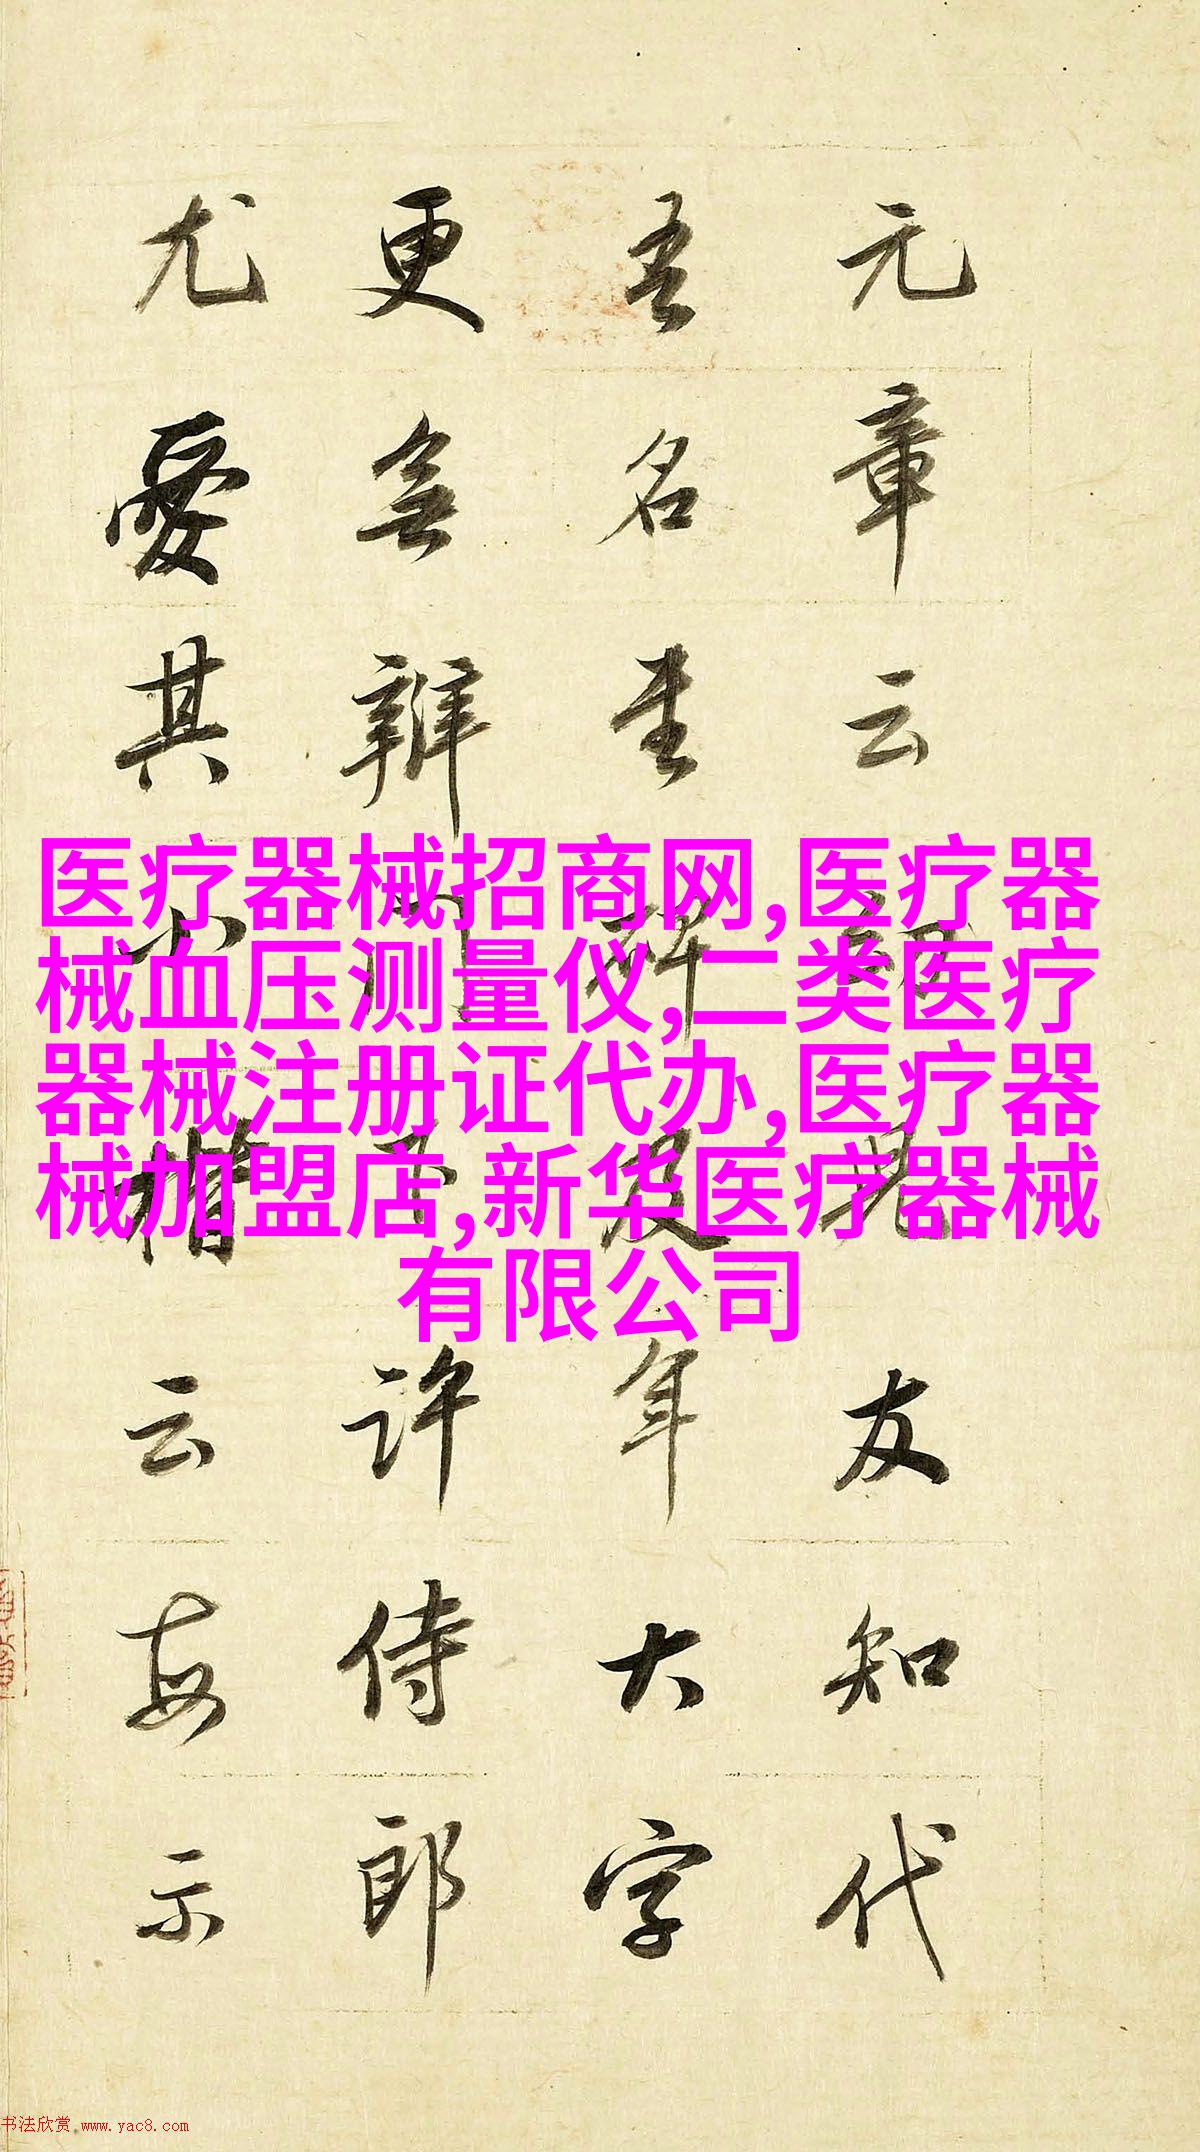 元章云幼兒友知代
吾名書碑及年大字
更無辨門下許侍郎
尤愛其小楷云每示
医疗器械招商网,医疗器
械血压测量仪,二类医疗
器械注册证代办,医疗器
械加盟店,新华医疗器械
有限公司
书法欣赏.www.yac8.com